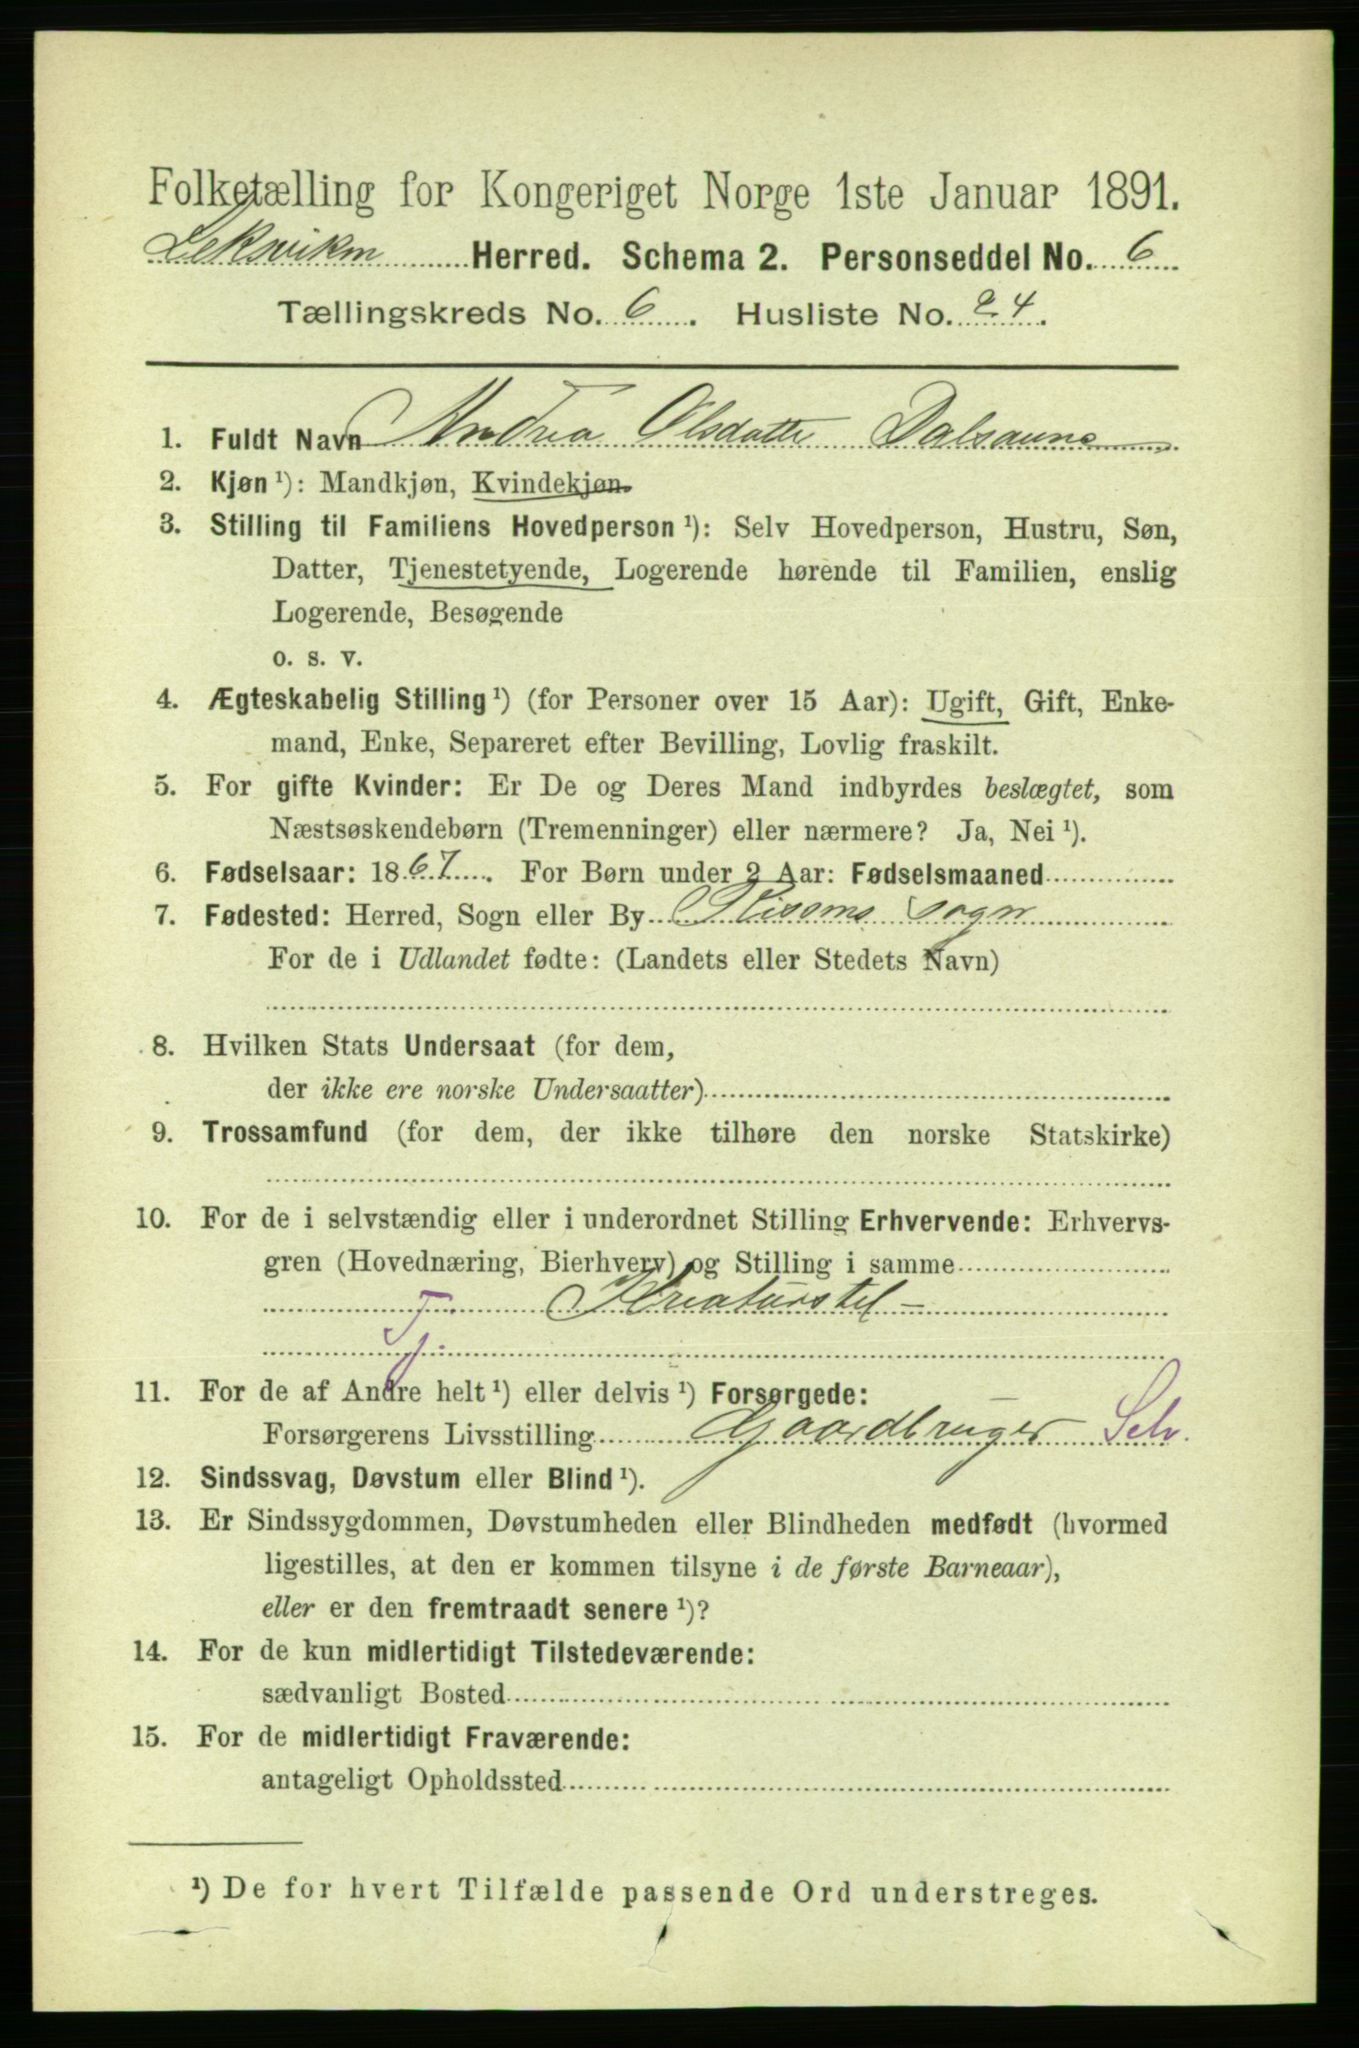 Folketælling for Kongeriget Norge 1ste Januar 1891.
Leksviken Herred. Schema 2. Personseddel No. 6
Tællingskreds No. 6. Husliste No. 24.
1. Fuldt Navn Andrea Olsdatter Dalsaune
2. Kjøn ¹): Mandkjøn, Kvindekjøn.
3. Stilling til Familiens Hovedperson ¹): Selv Hovedperson, Hustru, Søn,
Datter, Tjenestetyende, Logerende hørende til Familien, enslig
Logerende, Besøgende
o. s. v.
4. Ægteskabelig Stilling ¹) (for Personer over 15 Aar): Ugift, Gift, Enke-
mand, Enke, Separeret efter Bevilling, Lovlig fraskilt.
5. For gifte Kvinder: Er De og Deres Mand indbyrdes beslægtet, som
Næstsøskendebørn (Tremenninger) eller nærmere? Ja, Nei ¹).
6. Fødselsaar: 1867. For Børn under 2 Aar: Fødselsmaaned
7. Fødested: Herred, Sogn eller By Rissens Sogn
For de i Udlandet fødte: (Landets eller Stedets Navn)
8. Hvilken Stats Undersaat (for dem,
der ikke ere norske Undersaatter)
9. Trossamfund (for dem, der ikke tilhøre den norske Statskirke)
10. For de i selvstændig eller i underordnet Stilling Erhvervende: Erhvervs-
gren (Hovednæring, Bierhverv) og Stilling i samme
Kreaturstel
Tj.
11. For de af Andre helt ¹) eller delvis ¹) Forsørgede:
Forsørgerens Livsstilling Gaardbruger Selv.
12. Sindssvag, Døvstum eller Blind ¹).
13. Er Sindssygdommen, Døvstumheden eller Blindheden medfødt (hvormed
ligestilles, at den er kommen tilsyne i de første Barneaar),
eller er den fremtraadt senere ¹)?
14. For de kun midlertidigt Tilstedeværende:
sædvanligt Bosted
15. For de midlertidigt Fraværende:
antageligt Opholdssted
¹) De for hvert Tilfælde passende Ord understreges.